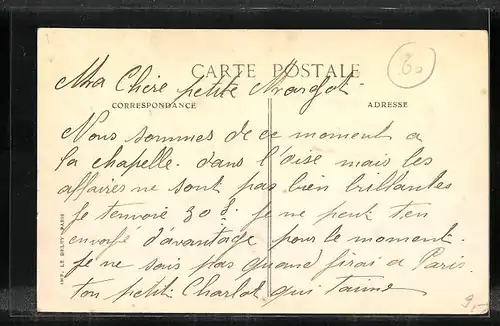 CARTE POSTALE
60
Ma Chère petite Margot.
CORRESPONDANCE
ADRESSE
Nous sommes de ce moment a
la chapelle. dans l'oise mais les
affaires ne sont pas bien brillantes
je tenvoie 30 f. je ne peut ten
envoyé d'avantage pour le moment.
je ne sais pas quand jirai a Paris.
ton petit Charlot qui taime
IMP. LE DELEY PARIS